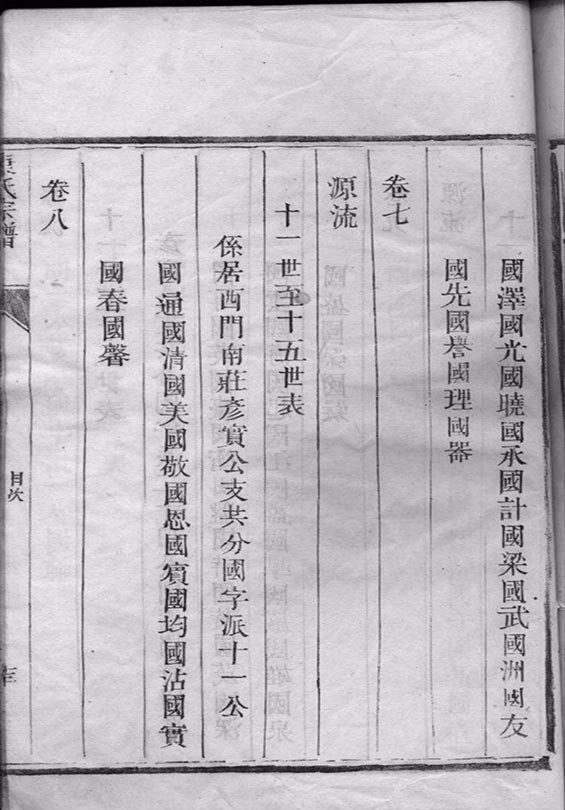 國澤國光國曉國承國計國梁國武國洲國友
國先國譽國理國器
卷七
源流
十一世至十五世表
係居西門南莊彥實公支共分國字派十一公
國通國清國美國敬國恩國賓國均國沾國實
國春國馨
卷八
氏宗譜
目次